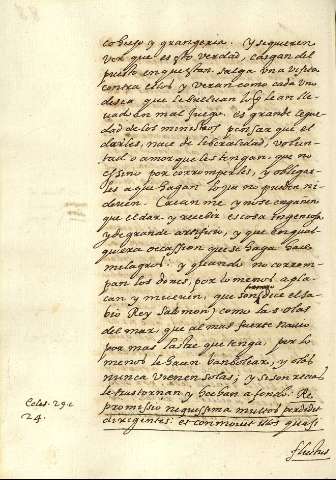 cohecho y grangeria. Y si quieren
ver que es esto verdad, caigan del
puesto en que estan. salga una visita
contra ellos y veran como cada uno
desea que le buelvan lo q le an lle
uado en mal juego. es grande ce
dad de los ministros pensar que el
darles, nace de liberalidad, volun
tad o amor que les tengan, que no
es sino por corromperles, y obligar
les a que hagan lo que no pueden ni
deven. Creanme y no se engañen
que el dar y recevir es cosa ingeniosa
y de grande artificio, y que en qual
quiera occassion que se haga hace
milagros: y quando no corrom
pan los dones, por lo menos apla
can y mueven, que son (dice el sa
bio Rey Salomon) como las olas
del mar, que al mas fuerte navio
por mas lastre que tenga, por lo
menos le hacen bambolear, y estas
nunca vienen solas; y si son recias
le trastornan y hechan a fondo: Re
promissio nequissima multos perdidit
dirigentes: et conmovit illos quasi
fluctus
Ecles. 29. c.
24.